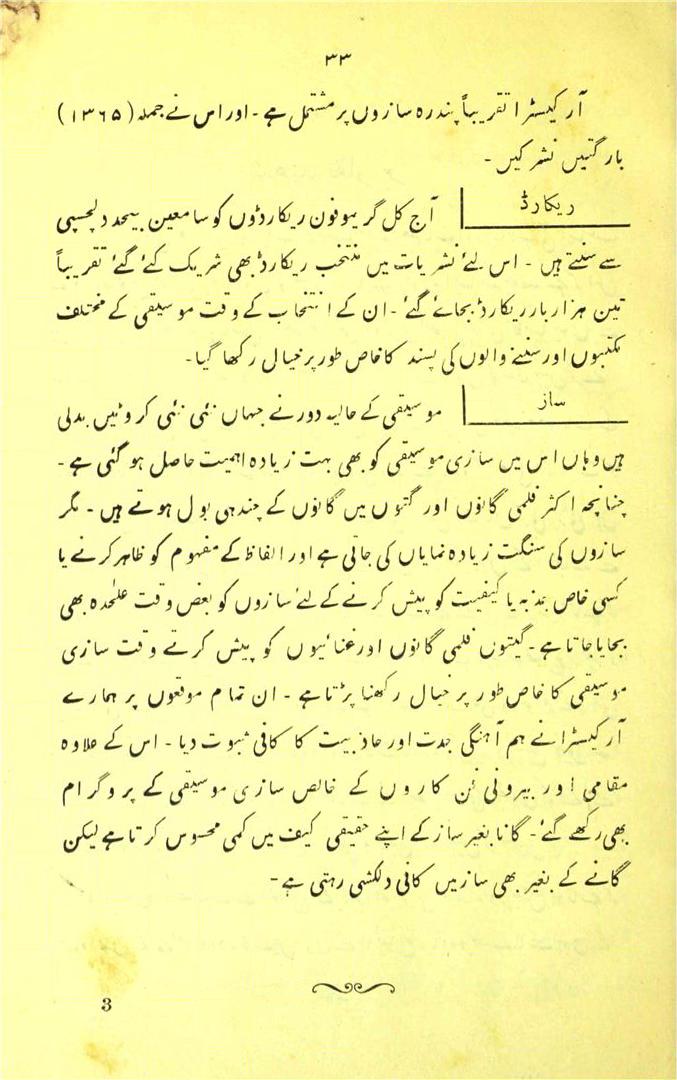 ۳۳
آرکیسٹرا تقریباً پندرہ سازوں پر مشتمل ہے ۔ اور اس نے جملہ (۱۳۶۵)
بار گتیں نشر کیں ۔
ریکارڈ
آج کل گریموفون ریکارڈوں کو سامعین بیحد دلچسپی
سے سنتے ہیں ۔ اس لئے نشریات میں منتخب ریکارڈ بھی شریک کئے گئے تقریباً
تین ہزار بار ریکارڈ بجائے گئے ۔ ان کے انتخاب کے وقت موسیقی کے مختلف
مکتبوں اور سننے والوں کی پسند کا خاص طور پر خیال رکھا گیا ۔
ساز
موسیقی کے حالیہ دور نے جہاں نئی نئی کروٹیں بدلی
ہیں وہاں اس میں سازی موسیقی کو بھی بہت زیادہ اہمیت حاصل ہو گئی ہے ۔
چنانچہ اکثر فلمی گانوں اور گتوں میں گانوں کے چند ہی بول ہوتے ہیں ۔ مگر
سازوں کی سنگت زیادہ نمایاں کی جاتی ہے اور الفاظ کے مفہوم کو ظاہر کرنے یا
کسی خاص جذبہ یا کیفیت کو پیش کرنے کے لئے سازوں کو بعض وقت علٰحدہ بھی
بجایا جاتا ہے ۔ گیتوں فلمی گانوں اور غنائیوں کو پیش کرتے وقت سازی
موسیقی کا خاص طور پر خیال رکھنا پڑتا ہے ۔ ان تمام موقعوں پر ہمارے
آرکیسٹرا نے ہم آہنگی جدت اور جاذبیت کا کافی ثبوت دیا ۔ اس کے علاوہ
مقامی اور بیرونی فن کاروں کے خالص سازی موسیقی کے پروگرام
بھی رکھے گئے ۔ گانا بغیر ساز کے اپنے حقیقی کیف میں کمی محسوس کرتا ہے لیکن
گانے کے بغیر بھی ساز میں کافی دلکشی رہتی ہے ۔
3